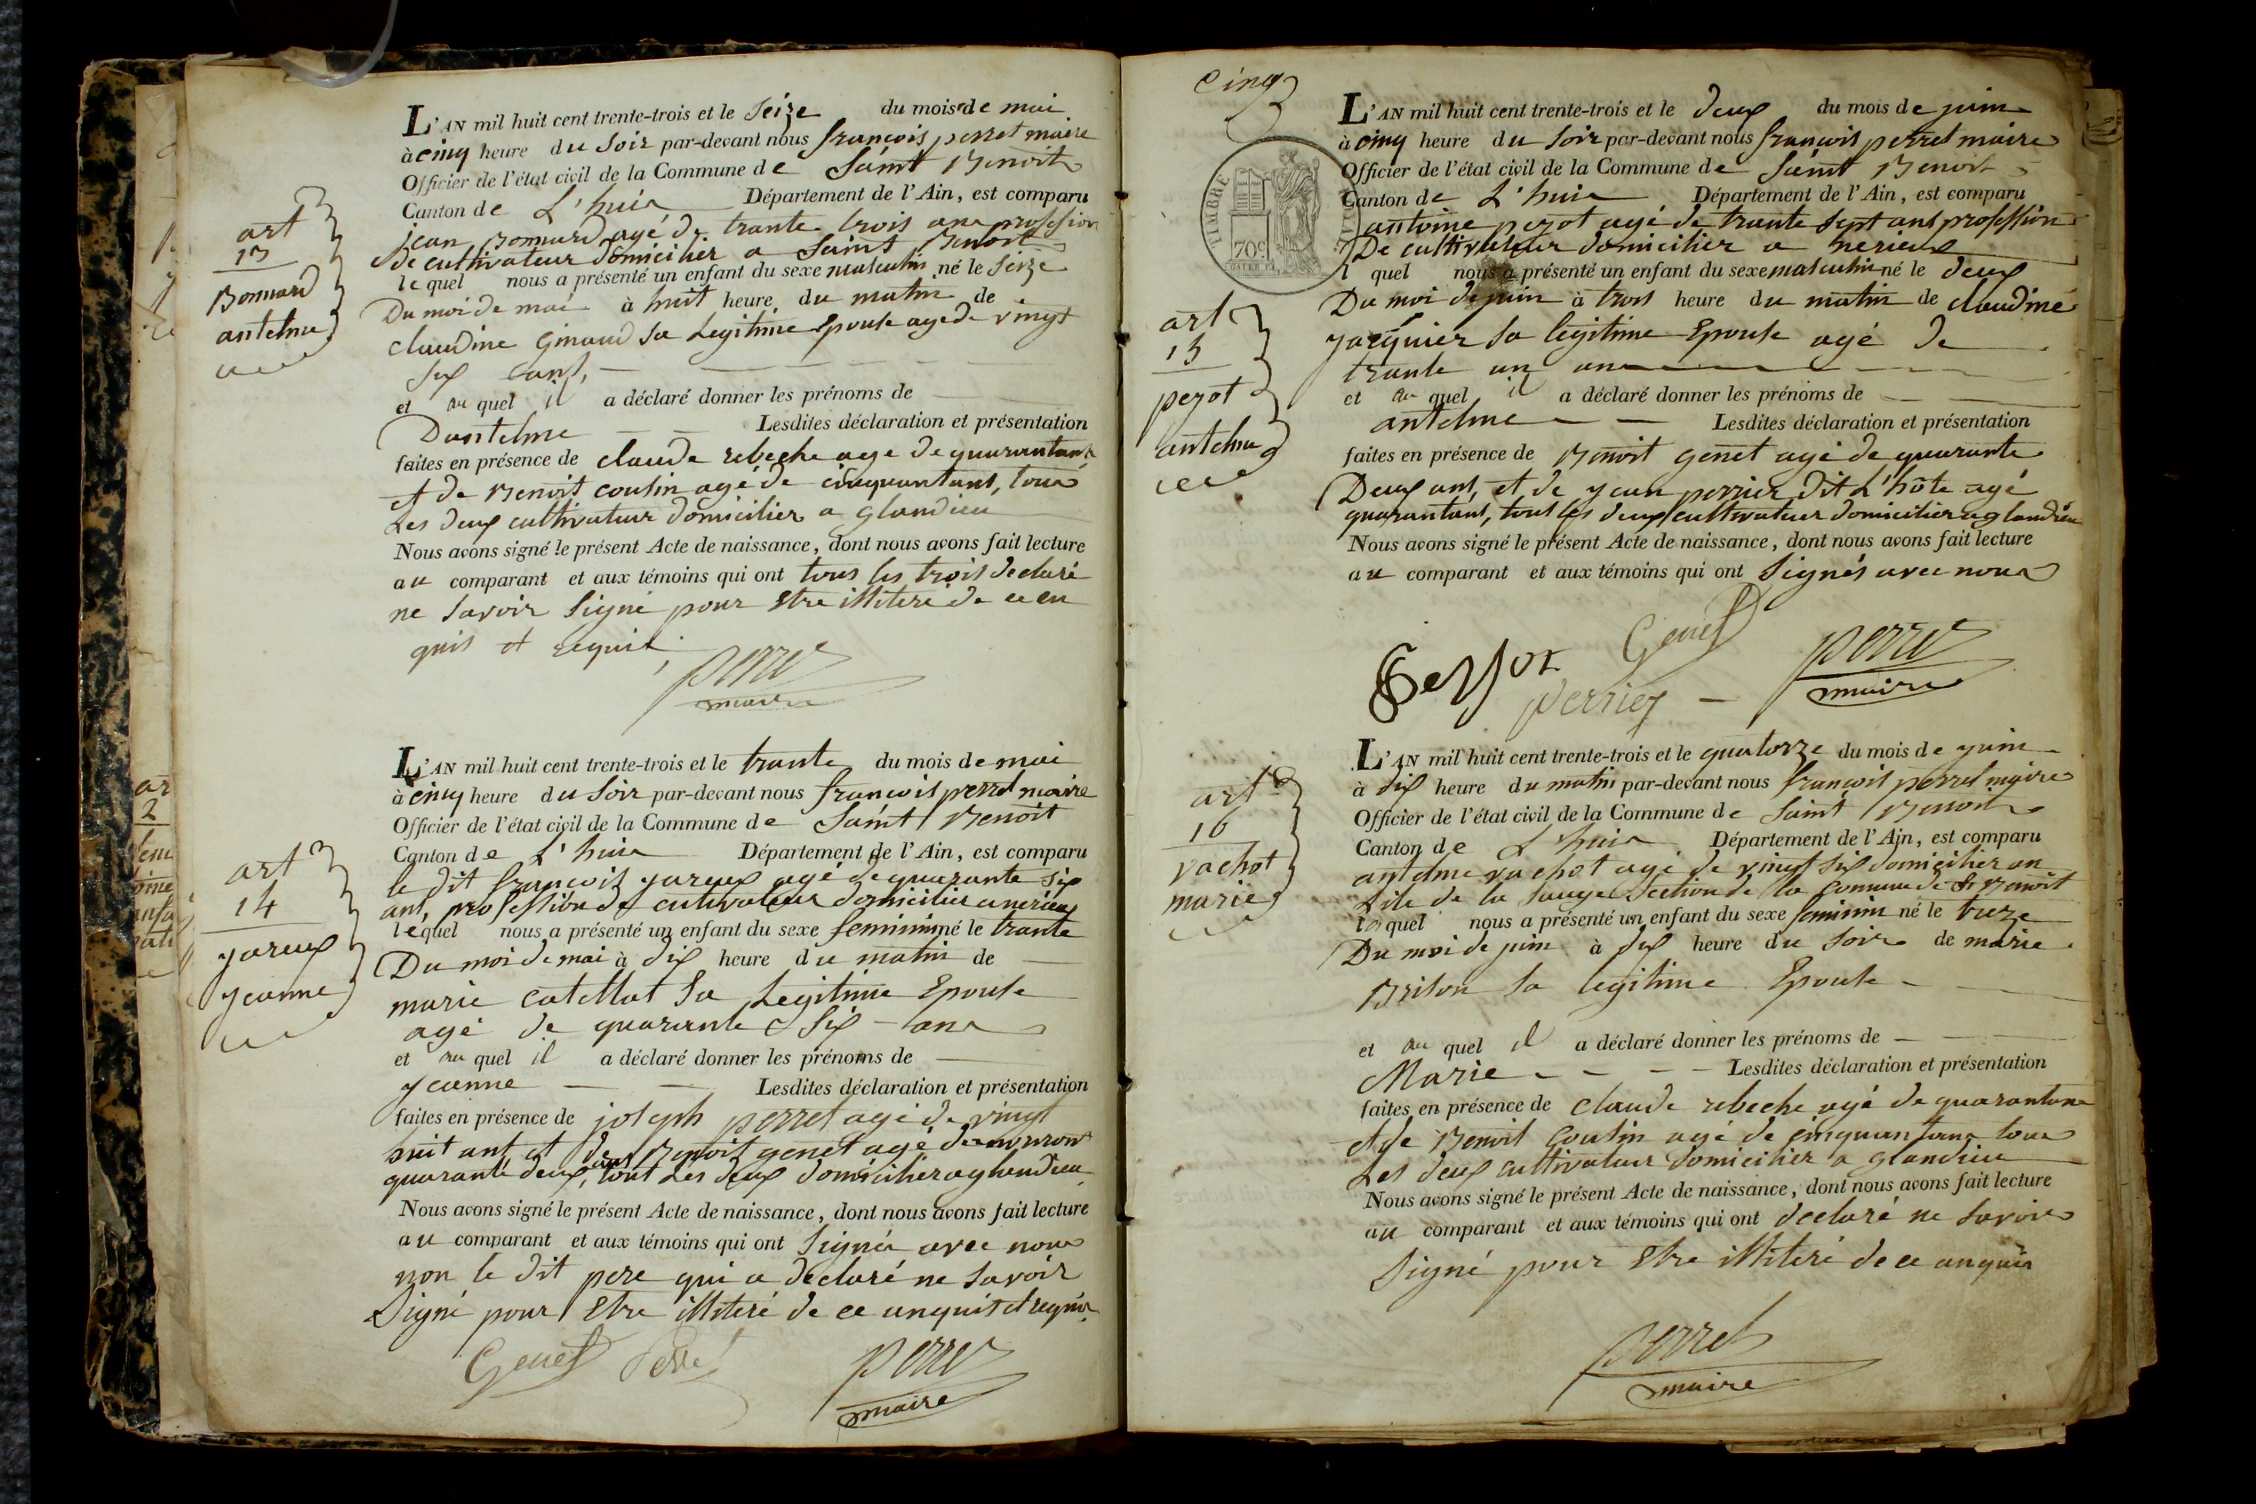 art
13
Bonnard
antelme
L'AN mil huit cent trente-trois et le Seize du mois de mai
à cinq heure du Soir par-devant nous françois perret maire
Officier de l'état civil de la Commune de Saint Benoit
Canton de L'huis Département de l'Ain, est comparu
jean Bonnard agé de trante trois ans profession
de cultivateur domicilier a Saint Benoit
lequel nous a présenté un enfant du sexe masculin né le Seize
Du moi de mai à huit heure du matin de
claudine Ginaud Sa Legitime Epouse agé de vingt
six ans,
et au quel il a déclaré donner les prénoms de
Dantelme Lesdites déclaration et présentation
faites en présence de claude rebeche age de quarantans
et de Benoit coutin agé de cinquantans, tous
Les deux cultivateur domicilier a glandieu
Nous avons signé le présent Acte de naissance, dont nous avons fait lecture
au comparant et aux témoins qui ont tous les trois declaré
ne Savoir Signé pour Etre illiteré de ce en
quis et requis
perret
maire
art
14
jareux
jeanne
L'AN mil huit cent trente-trois et le trante du mois de mai
à cinq heure du Soir par-devant nous françois perret maire
Officier de l'état civil de la Commune de Saint Benoit
Canton de L'huis Département de l'Ain, est comparu
le dit françois jareux agé de quarante six
ans, profession de cultivateur domicilier a nerieux
lequel nous a présenté un enfant du sexe feminin né le trante
Du moi de mai à dix heure du matin de
marie catellat Sa Legitime Epouse
agé de quarante Six ans
et au quel il a déclaré donner les prénoms de
jeanne Lesdites déclaration et présentation
faites en présence de joseph perret agé de vingt
huit ant et de Benoit genet agé de
quarante deux ans, tout Les deux domicilier a glandieu
Nous avons signé le présent Acte de naissance, dont nous avons fait lecture
au comparant et aux témoins qui ont Signés avec nous
non le dit pere qui a declaré ne Savoir
Signé pour Etre illiteré de ce anquis et requis
Genet Perret perret
maire
cinq
TIMBRE
70c
art
15
pezot
antelme
L'AN mil huit cent trente-trois et le deux du mois de juin
à cinq heure du Soir par-devant nous françois perret maire
Officier de l'état civil de la Commune de Saint Benoit
Canton de L'huis Département de l'Ain, est comparu
antoine pezot agé de trante Sept ans profession
De cultivateur domicilier a nerieux
lequel nous a présenté un enfant du sexe masculin né le deux
Du moi de juin à trois heure du matin de claudine
jacquier Sa legitime Epouse agé de
trante un ans
et au quel il a déclaré donner les prénoms de
antelme Lesdites déclaration et présentation
faites en présence de Benoit genet agé de quarante
Deux ans, et de jean perrier Dit L'hôte agé
quarantans, tous les deux cultivateur domicilier a glandieu
Nous avons signé le présent Acte de naissance, dont nous avons fait lecture
au comparant et aux témoins qui ont Signés avec nous
Genet
perret
maire
perrier
art
16
vachot
marie
L'AN mil huit cent trente-trois et le quatorze du mois de juin
à dix heure du matin par-devant nous françois perret maire
Officier de l'état civil de la Commune de Saint Benoit
Canton de L'huis Département de l'Ain, est comparu
antelme vachot agé de vingt six domicilier an
Lile de la Sauge Section de la commune de St Benoit
lequel nous a présenté un enfant du sexe feminin né le treze
Du moi de juin à dix heure du Soir de marie
Brison Sa legitime Epouse
et au quel il a déclaré donner les prénoms de
Marie Lesdites déclaration et présentation
faites en présence de claude rebeche agé de quarantans
et de Benoit Coutin agé de cinquantans tous
Les deux cultivateur domicilier a glandieu
Nous avons signé le présent Acte de naissance, dont nous avons fait lecture
au comparant et aux témoins qui ont declaré ne Savoir
Signé pour Etre illiteré de ce anquis
perret
maire